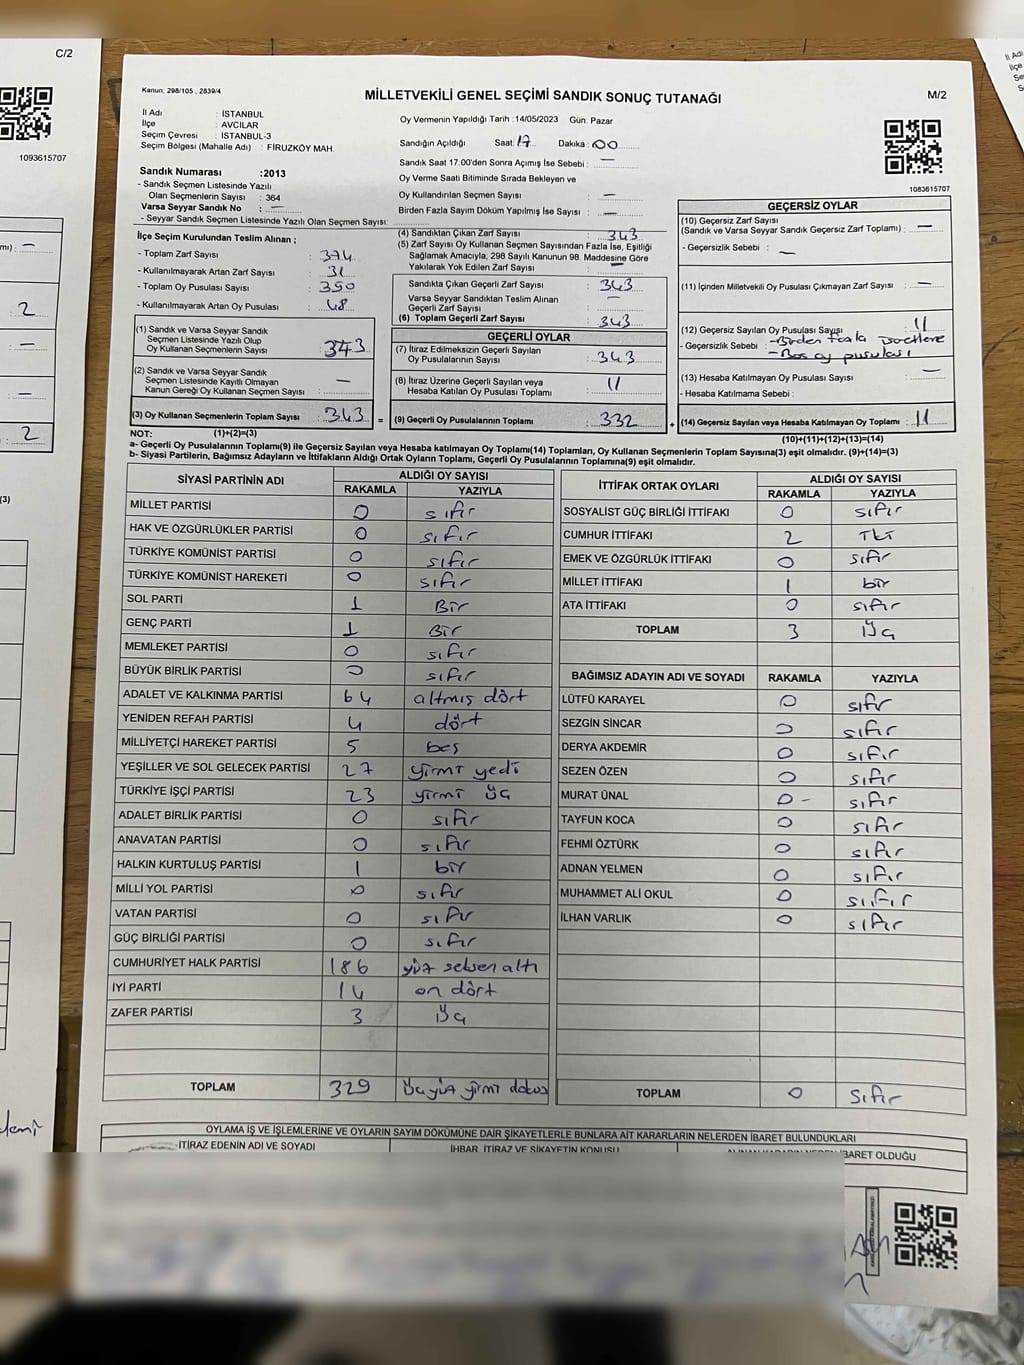 C/2
1093615707
Kanun; 298/105 , 2839/4
MİLLETVEKİLİ GENEL SEÇİMİ SANDIK SONUÇ TUTANAĞI
M/2
İl Adı : İSTANBUL
İlçe : AVCILAR
Seçim Çevresi : İSTANBUL-3
Seçim Bölgesi (Mahalle Adı) : FİRUZKÖY MAH.
Oy Vermenin Yapıldığı Tarih :14/05/2023 Gün: Pazar
Sandığın Açıldığı Saat: 17 Dakika: 00
Sandık Saat 17:00'den Sonra Açımış İse Sebebi : —
Oy Verme Saati Bitiminde Sırada Bekleyen ve
Oy Kullandırılan Seçmen Sayısı : —
Birden Fazla Sayım Döküm Yapılmış İse Sayısı : —
1083615707
Sandık Numarası :2013
- Sandık Seçmen Listesinde Yazılı
Olan Seçmenlerin Sayısı : 364
Varsa Seyyar Sandık No : —
- Seyyar Sandık Seçmen Listesinde Yazılı Olan Seçmen Sayısı:
İlçe Seçim Kurulundan Teslim Alınan ;
- Toplam Zarf Sayısı : 374
- Kullanılmayarak Artan Zarf Sayısı : 31
- Toplam Oy Pusulası Sayısı : 350
- Kullanılmayarak Artan Oy Pusulası : 48
(1) Sandık ve Varsa Seyyar Sandık
Seçmen Listesinde Yazılı Olup
Oy Kullanan Seçmenlerin Sayısı : 343
(2) Sandık ve Varsa Seyyar Sandık
Seçmen Listesinde Kayıtlı Olmayan
Kanun Gereği Oy Kullanan Seçmen Sayısı : —
(3) Oy Kullanan Seçmenlerin Toplam Sayısı : 343 =
(4) Sandıktan Çıkan Zarf Sayısı : 343
(5) Zarf Sayısı Oy Kullanan Seçmen Sayısından Fazla İse, Eşitliği
Sağlamak Amacıyla; 298 Sayılı Kanunun 98. Maddesine Göre
Yakılarak Yok Edilen Zarf Sayısı : —
Sandıkta Çıkan Geçerli Zarf Sayısı : 343
Varsa Seyyar Sandıktan Teslim Alınan
Geçerli Zarf Sayısı : —
(6) Toplam Geçerli Zarf Sayısı : 343
GEÇERLİ OYLAR
(7) İtiraz Edilmeksizin Geçerli Sayılan
Oy Pusulalarının Sayısı : 343
(8) İtiraz Üzerine Geçerli Sayılan veya
Hesaba Katılan Oy Pusulaları Toplamı : 11
(9) Geçerli Oy Pusulalarının Toplamı : 332 +
GEÇERSİZ OYLAR
(10) Geçersiz Zarf Sayısı
(Sandık ve Varsa Seyyar Sandık Geçersiz Zarf Toplamı) : —
- Geçersizlik Sebebi : —
(11) İçinden Milletvekili Oy Pusulası Çıkmayan Zarf Sayısı : —
(12) Geçersiz Sayılan Oy Pusulası Sayısı : 11
- Geçersizlik Sebebi : -Birden fazla
- Boş oy pusulası
(13) Hesaba Katılmayan Oy Pusulası Sayısı : —
- Hesaba Katılmama Sebebi :
(14) Geçersiz Sayılan veya Hesaba Katılmayan Oy Toplamı : 11
NOT: (1)+(2)=(3)
(10)+(11)+(12)+(13)=(14)
a- Geçerli Oy Pusulalarının Toplamı(9) ile Geçersiz Sayılan veya Hesaba katılmayan Oy Toplamı(14) Toplamları, Oy Kullanan Seçmenlerin Toplam Sayısına(3) eşit olmalıdır. (9)+(14)=(3)
b- Siyasi Partilerin, Bağımsız Adayların ve İttifakların Aldığı Ortak Oyların Toplamı, Geçerli Oy Pusulalarının Toplamına(9) eşit olmalıdır.
SİYASİ PARTİNİN ADI ALDIĞI OY SAYISI
RAKAMLA YAZIYLA
MİLLET PARTİSİ 0 sıfır
HAK VE ÖZGÜRLÜKLER PARTİSİ 0 sıfır
TÜRKİYE KOMÜNİST PARTİSİ 0 sıfır
TÜRKİYE KOMÜNİST HAREKETİ 0 sıfır
SOL PARTİ 1 Bir
GENÇ PARTİ 1 Bir
MEMLEKET PARTİSİ 0 sıfır
BÜYÜK BİRLİK PARTİSİ 0 sıfır
ADALET VE KALKINMA PARTİSİ 64 altmış dört
YENİDEN REFAH PARTİSİ 4 dört
MİLLİYETÇİ HAREKET PARTİSİ 5 beş
YEŞİLLER VE SOL GELECEK PARTİSİ 27 yirmi yedi
TÜRKİYE İŞÇİ PARTİSİ 23 yirmi üç
ADALET BİRLİK PARTİSİ 0 sıfır
ANAVATAN PARTİSİ 0 sıfır
HALKIN KURTULUŞ PARTİSİ 1 bir
MİLLİ YOL PARTİSİ 0 sıfır
VATAN PARTİSİ 0 sıfır
GÜÇ BİRLİĞİ PARTİSİ 0 sıfır
CUMHURİYET HALK PARTİSİ 186 yüz seksen altı
İYİ PARTİ 14 on dört
ZAFER PARTİSİ 3 üç
TOPLAM 329 üçyüz yirmi dokuz
İTTİFAK ORTAK OYLARI ALDIĞI OY SAYISI
RAKAMLA YAZIYLA
SOSYALİST GÜÇ BİRLİĞİ İTTİFAKI 0 sıfır
CUMHUR İTTİFAKI 2 İki
EMEK VE ÖZGÜRLÜK İTTİFAKI 0 sıfır
MİLLET İTTİFAKI 1 bir
ATA İTTİFAKI 0 sıfır
TOPLAM 3 üç
BAĞIMSIZ ADAYIN ADI VE SOYADI RAKAMLA YAZIYLA
LÜTFÜ KARAYEL 0 sıfır
SEZGİN SİNCAR 0 sıfır
DERYA AKDEMİR 0 sıfır
SEZEN ÖZEN 0 sıfır
MURAT ÜNAL 0 - sıfır
TAYFUN KOCA 0 sıfır
FEHMİ ÖZTÜRK 0 sıfır
ADNAN YELMEN 0 sıfır
MUHAMMET ALİ OKUL 0 sıfır
İLHAN VARLIK 0 sıfır
TOPLAM 0 sıfır
OYLAMA İŞ VE İŞLEMLERİNE VE OYLARIN SAYIM DÖKÜMÜNE DAİR ŞİKAYETLERLE BUNLARA AİT KARARLARIN NELERDEN İBARET BULUNDUKLARI
İTİRAZ EDENİN ADI VE SOYADI İHBAR, İTİRAZ VE ŞİKAYETİN KONUSU İBARET OLDUĞU